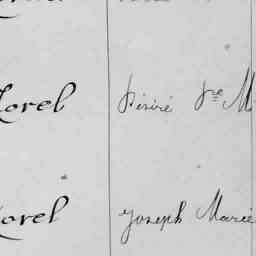 Lorel Désiré Pre M
Lorel Joseph Marie